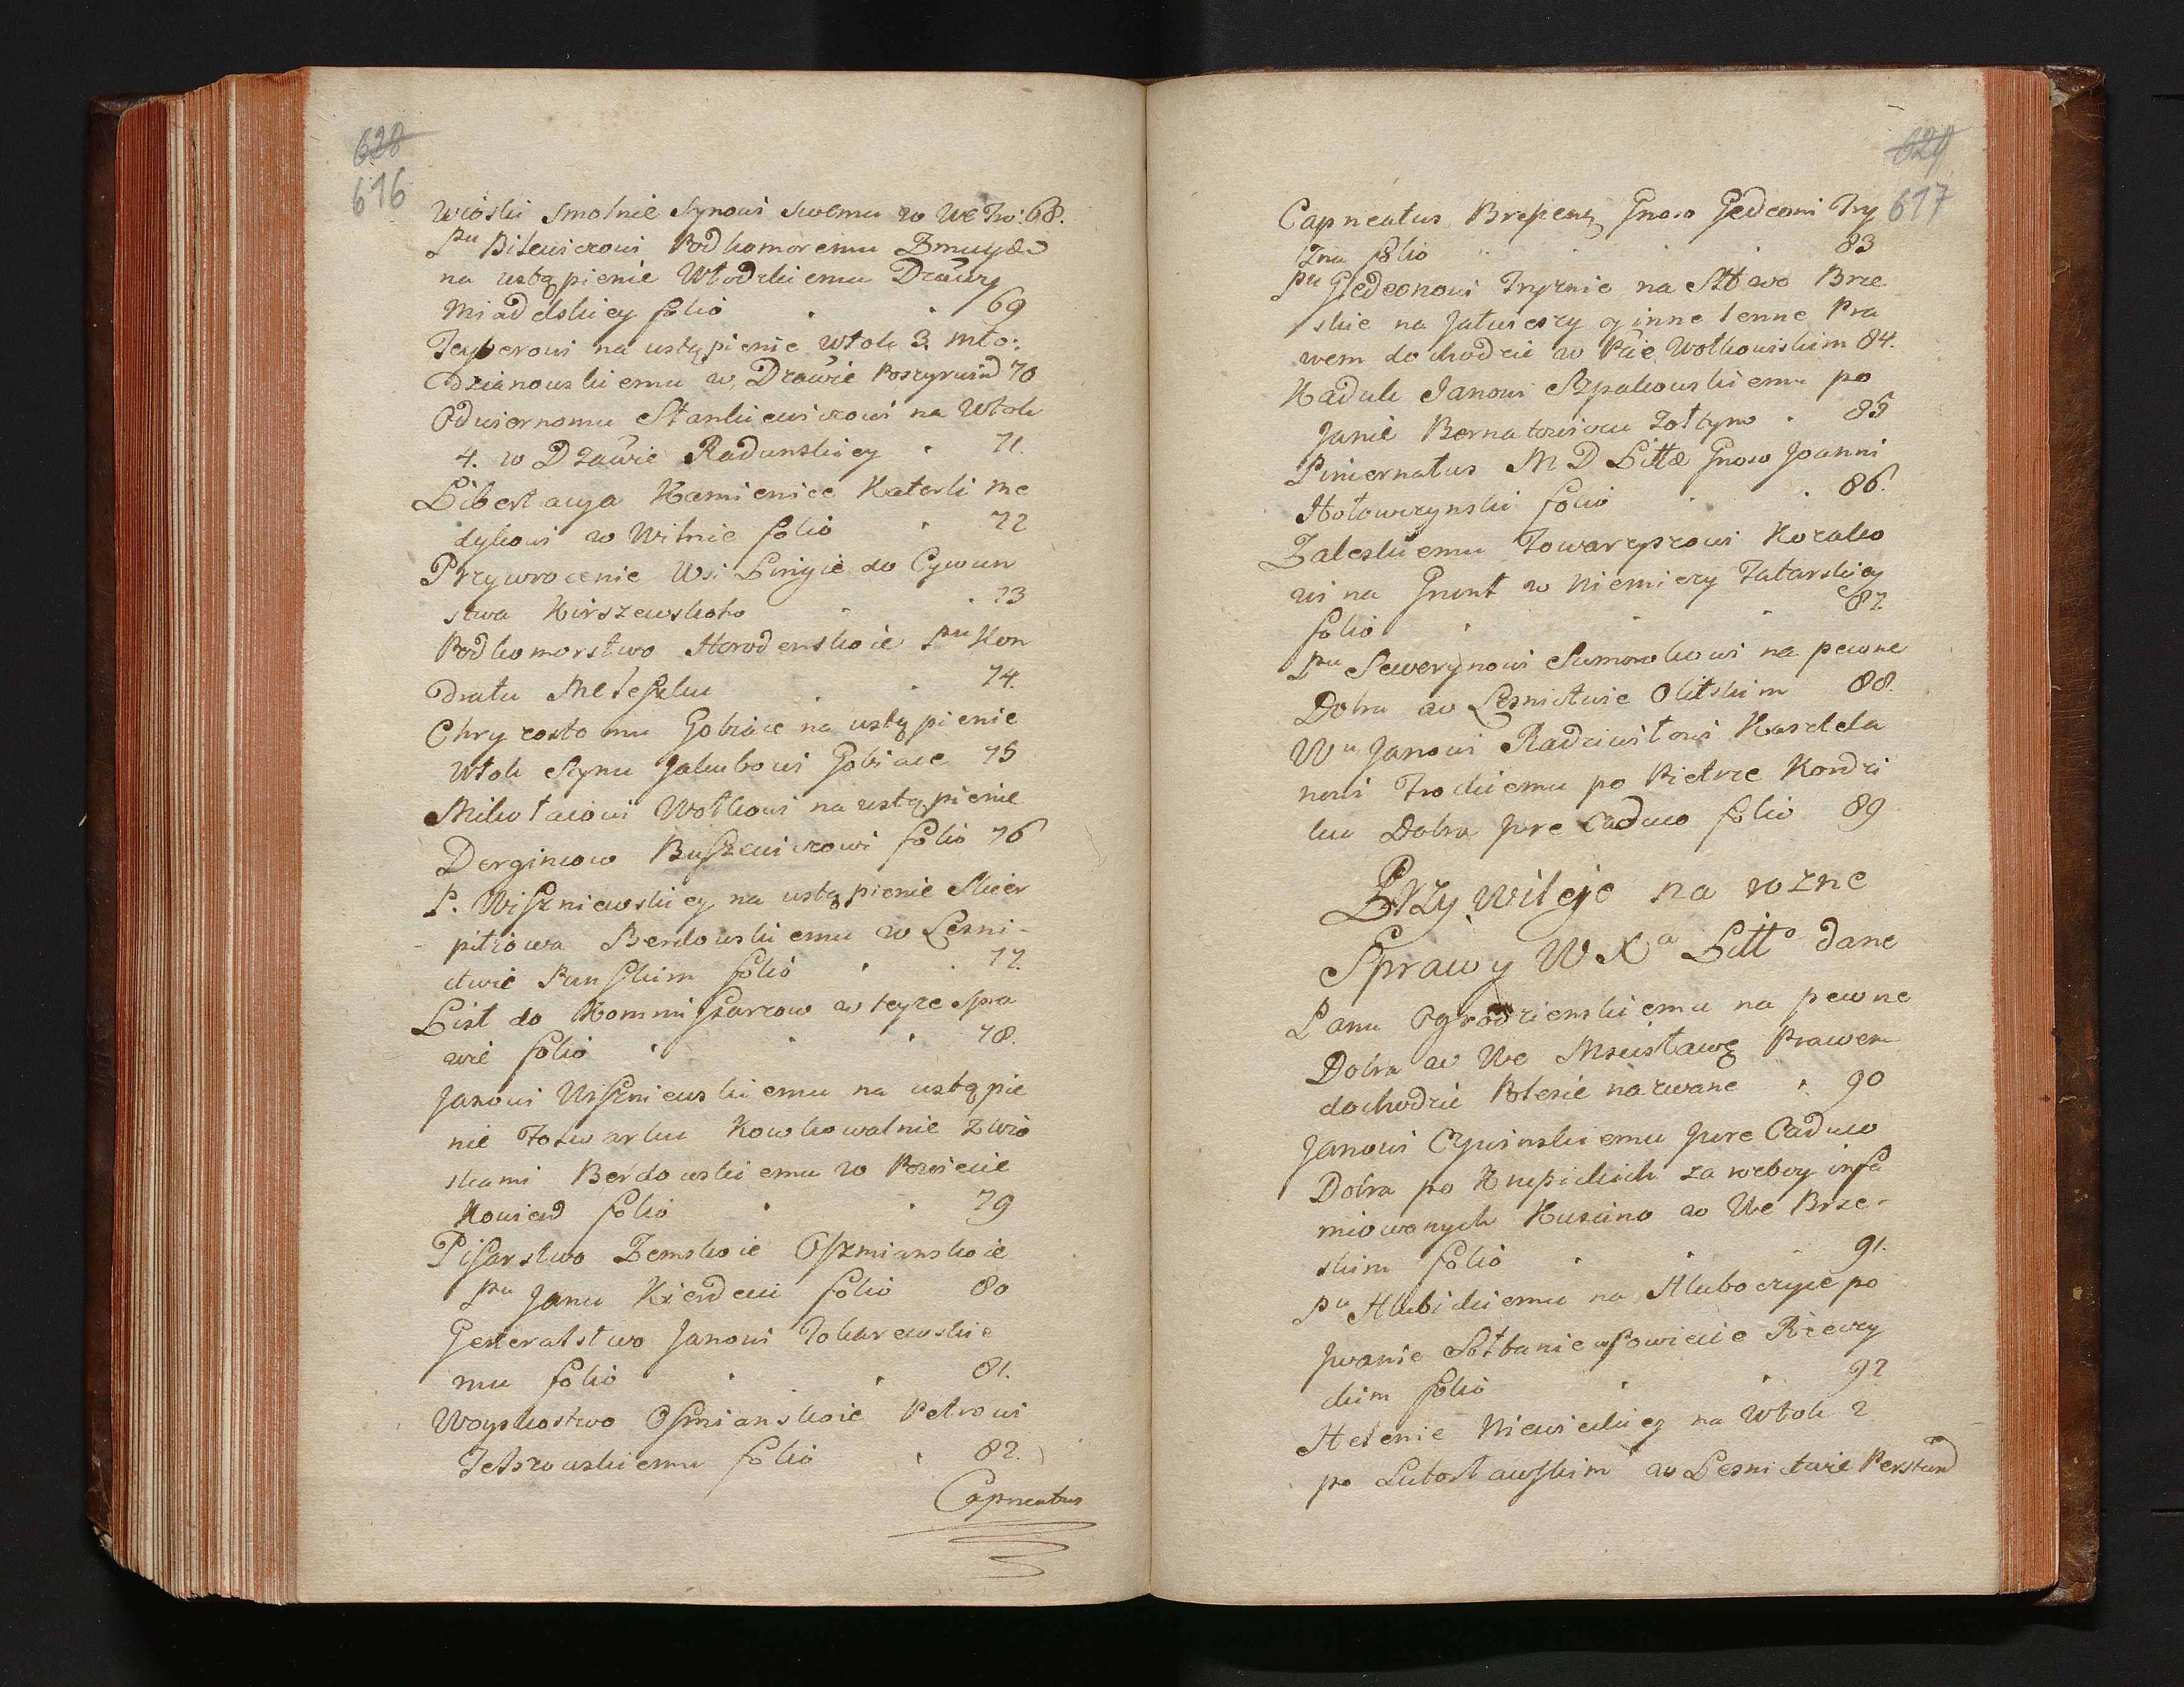 628
616
Wioski Smolnie Synowi Swemu w We Tro: 68.
Pnu Bilewiczowi Podkomoremu Zmuydz
na ustąpienie Włodzkiemu Dzawy
Miadelskiey folio 69
Teyberowi na ustąpienie Włok 3. Mło:
dzianowskiemu w Dzawie Poszyrwind 70
Odwiernomu Stankiewiczowi na Włok
4. w Dzawie Radunskiey 71.
Libertacya Kamienice Katerli Me
dykowi w Wilnie folio 72
Przywrocenie Wsi Lingie do Cywun
stwa Kirszewskoho 73
Podkomorstwo Horodenskoie Pnu Kon
dratu Meleszku 74.
Chryzostomu Gobiacie na ustąpienie
Włok Synu Jakubowi Gobiacie 75
Mikołaiowi Wołkowi na ustąpienie
Dergincow Buszewiczowi folio 76
P. Wiszniewskiey na ustąpienie Skier
pitiowa Berdowskiemu w Lesni-
ctwie Punskim folio 77.
List do Kommiszarzow w teyze Spra
wie folio 78.
Janowi Wiszniewskiemu na ustąpie
nie Folwarku Kowkowalnie Zwio
skami Berdowskiemu w Powiecie
Kowien folio 79
Pisarstwo Zemskoie Oszmianskoie
Pnu Janu Kierdeiu folio 80
Generalstwo Janowi Tokarewskie
mu folio 81.
Woyskostwo Osmianskoie Petrowi
Jetszowskiemu folio 82.
Capneatus
629
617
Capneatus Brestens Gnoso Gedeoni Try
Zna folio 83
Pnu Gedeonowi Tryznie na Sttwo Brze
skie na Jałwiesry y inne lenne Pra
wem dochodzic w Pcie Wołkowiskim 84.
Kaduk Janowi Szpakowskiemu po
Janie Bernatowiczu Zołtym 85
Pincernatus M D Littae Gnoso Joanni
Hołowczynski folio 86.
Zaleskiemu Towarzyszowi Kozako
wi na Grunt w Niemiezy Tatarskiey
folio 87
Pnu Sewerynowi Sumorokowi na pewne
Dobra w Lesnictwie Olitskim 88.
Wu Janowi Radziwiłowi Kasztela
nowi Trockiemu po Pietrze Kondzi
ku Dobra Jure Caduco folio 89
Przywileje na rozne
Sprawy W Xa Litto dane
Panu Ogrodzienskiemu na pewne
Dobra w We Mscisławę Prawem
dochodzic Polesie nazwane 90
Janowi Czywinskiemu Jure Caduco
Dobra po Krupickich za webey infa
miowanych Kuscino w We Brze-
skim folio 91.
Pu Hlubickiemu na Hluboczyce po
Jwanie Sołbanie w Powiecie Rzeczy
ckim folio 92
Helenie Niewieckiey na Włok 2
po Lutosławskim w Lesnictwie Perstund